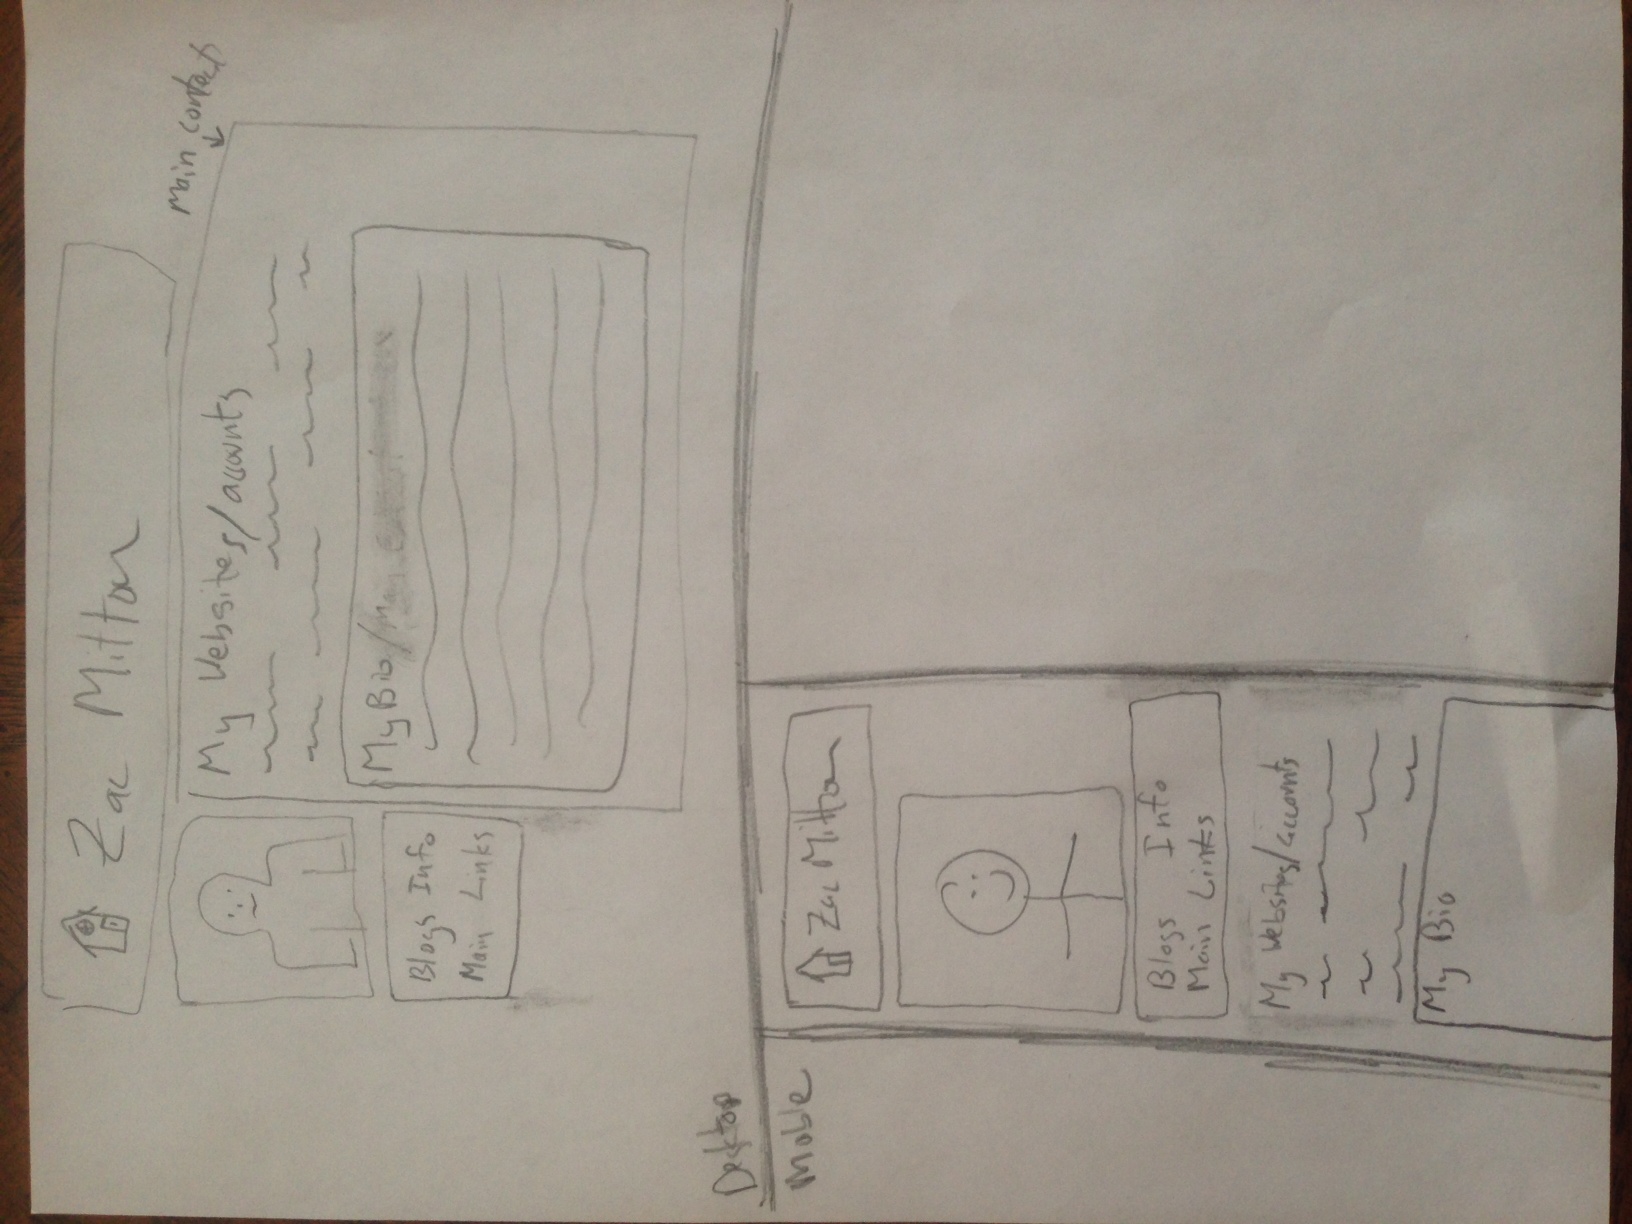 Zac Mitton
Main content
My Websites/accounts
My Bio/
Blogs Info
Main Links
Desktop
Moble
Zac Mitton
Blogs Info
Main Links
My Websites/accounts
My Bio